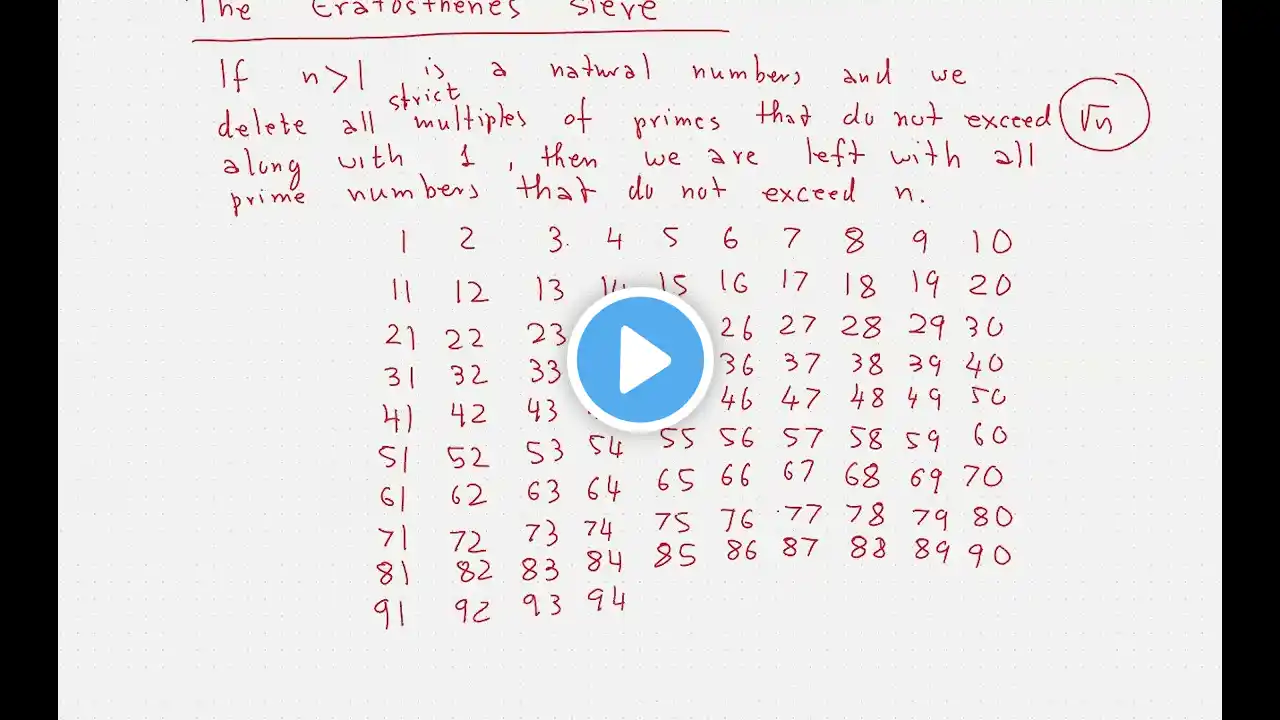 The Eratosthenes Sieve
If n>1 is a natural numbers and we
strict
delete all multiples of primes that do not exceed √n
along with 1, then we are left with all
prime numbers that do not exceed n.
1 2 3. 4 5 6 7 8 9 10
11 12 13 14 15 16 17 18 19 20
21 22 23 26 27 28 29 30
31 32 33 36 37 38 39 40
41 42 43 46 47 48 49 50
51 52 53 54 55 56 57 58 59 60
61 62 63 64 65 66 67 68 69 70
71 72 73 74 75 76 77 78 79 80
81 82 83 84 85 86 87 88 89 90
91 92 93 94